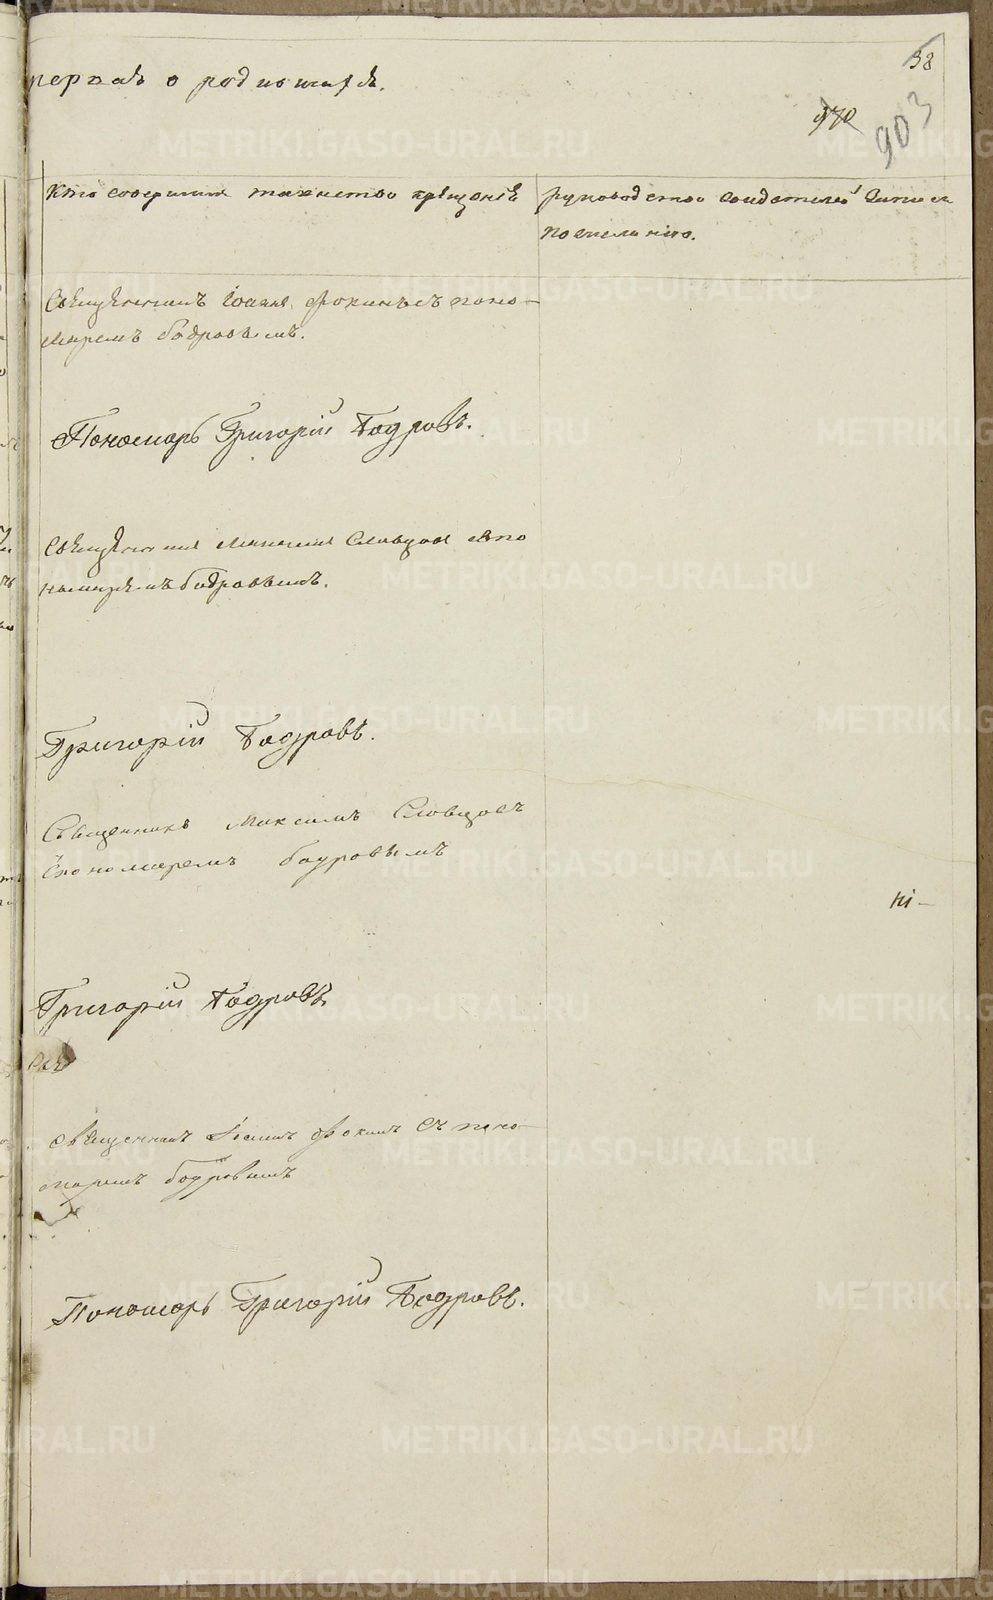 38
первая о родившихся.
970
903
Кто совершил таинство крещения
рукоприкладство свидетелей записи
по желанию.
Священникъ Іоаннъ Фокинъ съ поно-
маремъ Бодровымъ.
Пономарь Григорій Бодровъ.
Священникъ Максимъ Словцовъ съ по
намаремъ Бодровымъ.
Григорій Бодровъ.
Священникъ Максимъ Словцовъ
спономаремъ Бодровымъ
ні-
Григорій Бодровъ
Свя
Священникъ Іоаннъ Фокинъ съ поно-
маремъ Бодровымъ
Пономарь Григорій Бодровъ.
METRIKI.GASO-URAL.RU